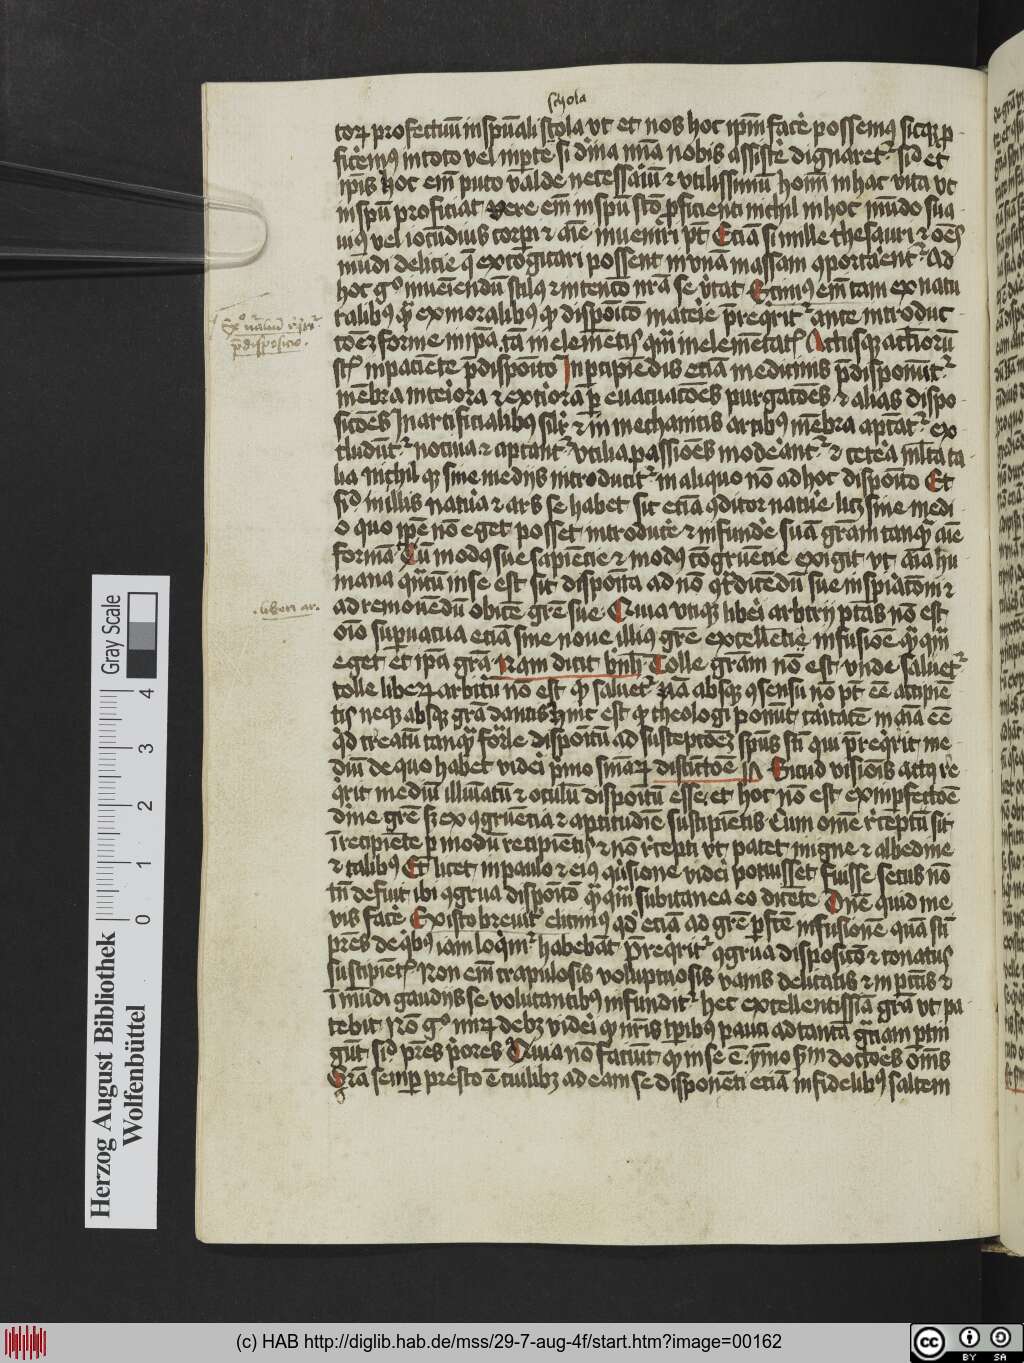 schola
torꝝ profectuū in spūali scola vt et nos hoc ipm̄ facē possemus sicqꝫ ꝓ
ficēmus in toto vel in ꝑte si dīna nr̄a nobis assistē dignaret᷑ sic et
ip̄is hoc em̄ puto valde necessāiū ⁊ vtilissimū hoīm in hac vita vt
in spū proficiat vere em̄ in spū sc̄o ꝓficienti nichil in hoc mūdo sua
uius vel iocūdius corpī ⁊ aīe inueniri pt̄ Etiā si mille thesauri ⁊ oēs
mūdi delicie q̄ excogitari possent in vnā massam ꝯportarent᷑ Ad
hoc gͦ inueniendū stilus ⁊ intentō nr̄a se v̄tat Elicimus em̄ tam ex natu
ralibus qͣ ex moralibus qꝫ dispōitō mateīe p̄reqͥrit᷑ ante introduc
toēꝫ forme in ip̄a tā in elemētis qͣm in elementatis Actusqꝫ actiuorū
st̄ in paciēte p̄dispoito In ꝑcipiēdis etiā medicinis p̄disponūt᷑
mēbra inteīora ⁊ extīora ꝑ euacuatōes purgatōes ⁊ alias dispo
sitōes In artificialibus silr̄ ⁊ in mechanicis artibus mēbra aptāt᷑ ex
cludūt᷑ nociua ⁊ aptant᷑ vtilia passiōes modeāant᷑ ⁊ cetera ml̄ta ta
lia Nichil qꝫ sine medijs introducit᷑ in aliquo nō ad hoc dispoito Et
sic in illis natura ⁊ ars se habet sic etiā ꝯditor nature licꝫ sine medi
o quo ip̄e nō eget posset introducē ⁊ infundē suā grām tanqͣ aīe
formā Tn̄ modus sue sapiencie ⁊ modus cōgruencie exigit vt aīa hu
mana qͣntū in se est sit disposita ad nō ꝯͣdicendū sue inspiratōni ⁊
.liberi ar.
ad remouēdū obicē grē sue Quia vtiqꝫ liberi arbitrij ptās nō est
oīo supuacua etiā sine noue illius grē excellencie infusiōe qͣqͣm
eget et ip̄a grā Nam dicit bn̄h Tolle grām nō est vnde saluet᷑
tolle liberꝝ arbitriū nō est qꝫ saluet᷑ Nā absqꝫ ꝯsensu nō pt̄ eē accipiē
tis neqꝫ absqꝫ grā dantis hinc est qꝫ theologi ponūt caritatē in aīa eē
qͦd creatū tanqͣ forāle dispoitū ad susceptōeꝫ spūs scī qui p̄reqͥrit me
diū de quo habet videi p̄mo sniaꝝ distictōe Sicud visiōis actus re
qͥrit mediū illuiatū ⁊ oculū dispoitū esse. et hoc nō est ex inꝑfectōe
diīne grē sꝫ ex ꝯgruēcia ⁊ aptitudie suscipientis Cum omē receptū sit
ī recipiēte ꝑ modū recipiētis ⁊ nō recepti vt patet in igne ⁊ albedine
⁊ talibus Et licet in paulo ⁊ eius ꝯuersione videi potuisset fuisse secus nō
tn̄ defuit ibi ꝯgrua dispoitō qͣqͣm subitanea eo dicēte Dn̄e quid me
vis facē Ex isto breuit᷑ elicimus qꝫ etiā ad grē ꝑfcē infusionē quā scī
pr̄es de qͥbus iam loqͥmr᷑ habebāt p̄reqͥrit᷑ ꝯgrua disposicō ⁊ conatus
suscipient᷑ Non em̄ crapulosis voluptuosis vanis delicatis ⁊ in ꝑctīs ⁊
ī mūdi gaudijs se volutantibus infundit᷑ hec excellentissīa grā vt pa
tebit Nō gͦ mirꝝ debꝫ videi qꝫ nr̄is tꝑibus pauci ad tantā grāiam ꝑtin
gūt sic pr̄es p̄ores Quia nō faciūt qꝫ in se ē. ymo scdm doctōes om̄s
Grā semꝑ presto ē cuilibꝫ ad eam se disponēti etiā infidelibus saltem
Herzog August Bibliothek
Wolfenbüttel
Gray Scale
0 1 2 3 4
(c) HAB http://diglib.hab.de/mss/29-7-aug-4f/start.htm?image=00162
cc BY SA